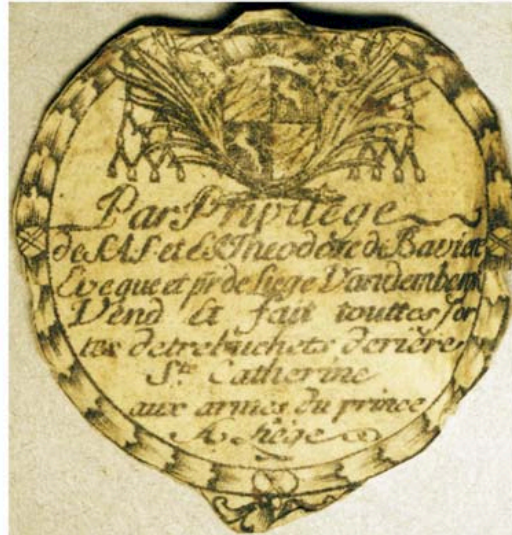 Par Privilége
de S A S et E Theodore de Baviere
Eveque et pr de Liege Vandembem
Vend Et fait touttes sor
tes de trebuchets deriére
Ste Catherine
aux armes du prince
A Liége